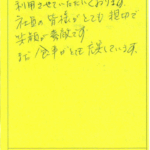 利用させていただいております。
社員の皆様がとても親切で
笑顔が素敵です。
また食事がとても充実しています。